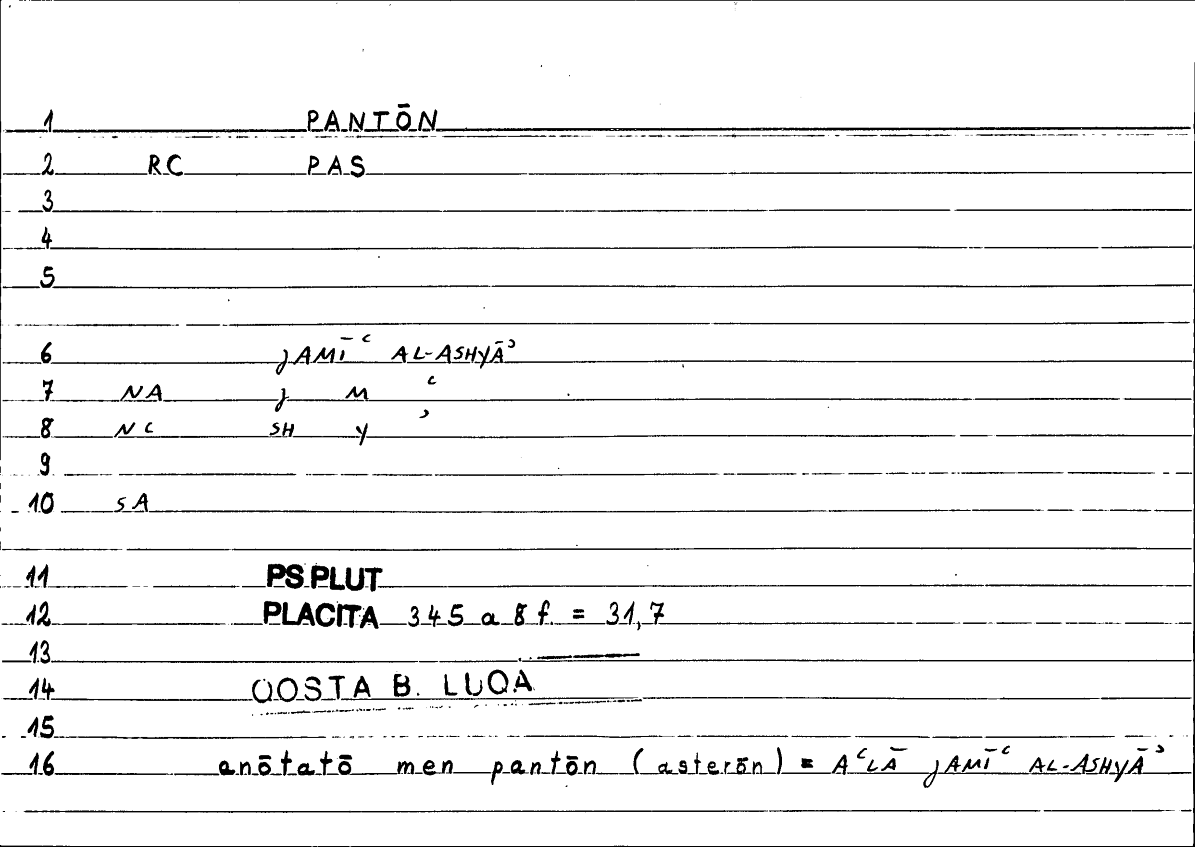 1 PANTŌN
2 RC PAS
3
4
5
6 JAMĪʿ AL-ASHYĀʾ
7 NA J M ʿ
8 NC SH Y ʾ
9
10 SA
11 PS.PLUT
12 PLACITA 345 a 8 f. = 31,7
13
14 QOSTA B. LUQA
15
16 anōtatō men pantōn (asterōn) = AʿLĀ JAMĪʿ AL-ASHYĀʾ